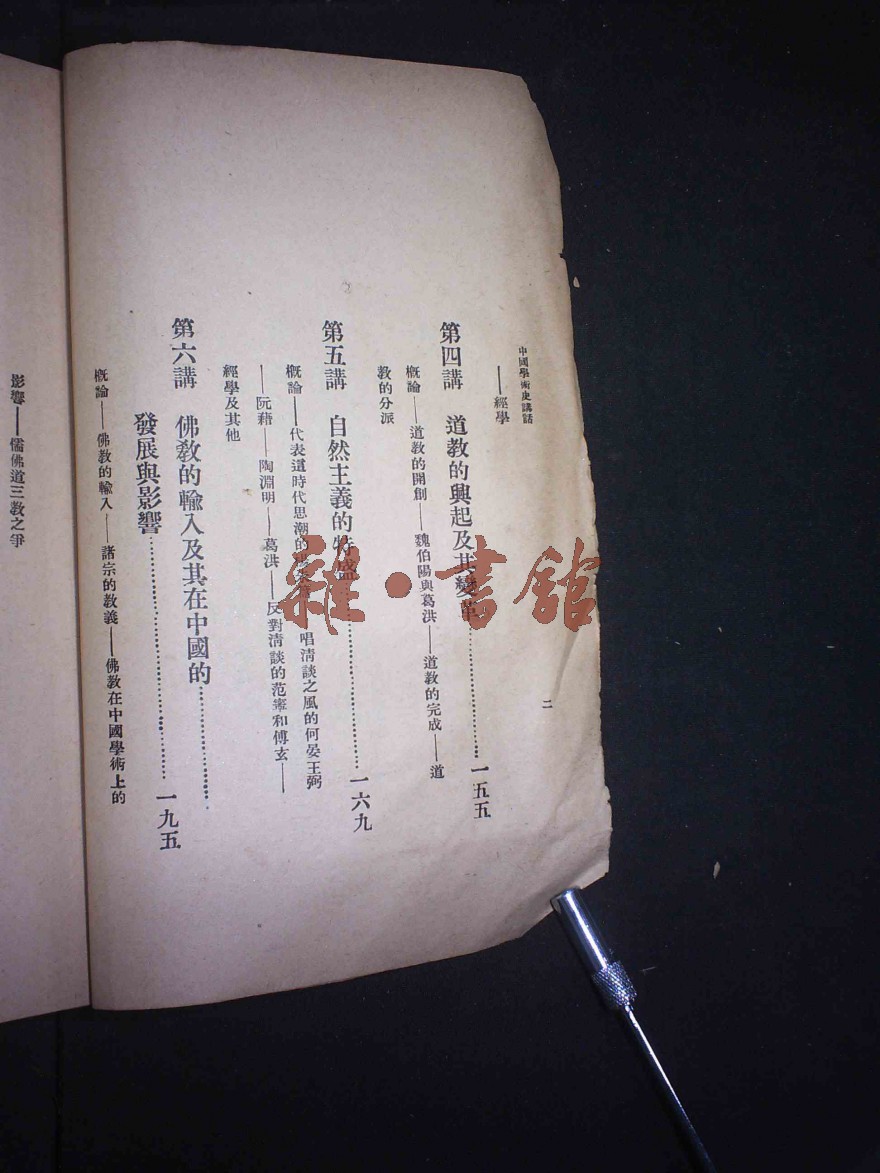 中國學術史講話
二
——經學
第四講 道教的興起及其變革……………一五五
概論——道教的開創——魏伯陽與葛洪——道教的完成——道
教的分派
第五講 自然主義的特盛……………一六九
概論——代表這時代思潮的 唱清談之風的何晏王弼
——阮藉——陶淵明——葛洪——反對清談的范甯和傅玄——
經學及其他
第六講 佛教的輸入及其在中國的……………
發展與影響……………一九五
概論——佛教的輸入——諸宗的教義——佛教在中國學術上的
影響——儒佛道三教之爭
雜·書館